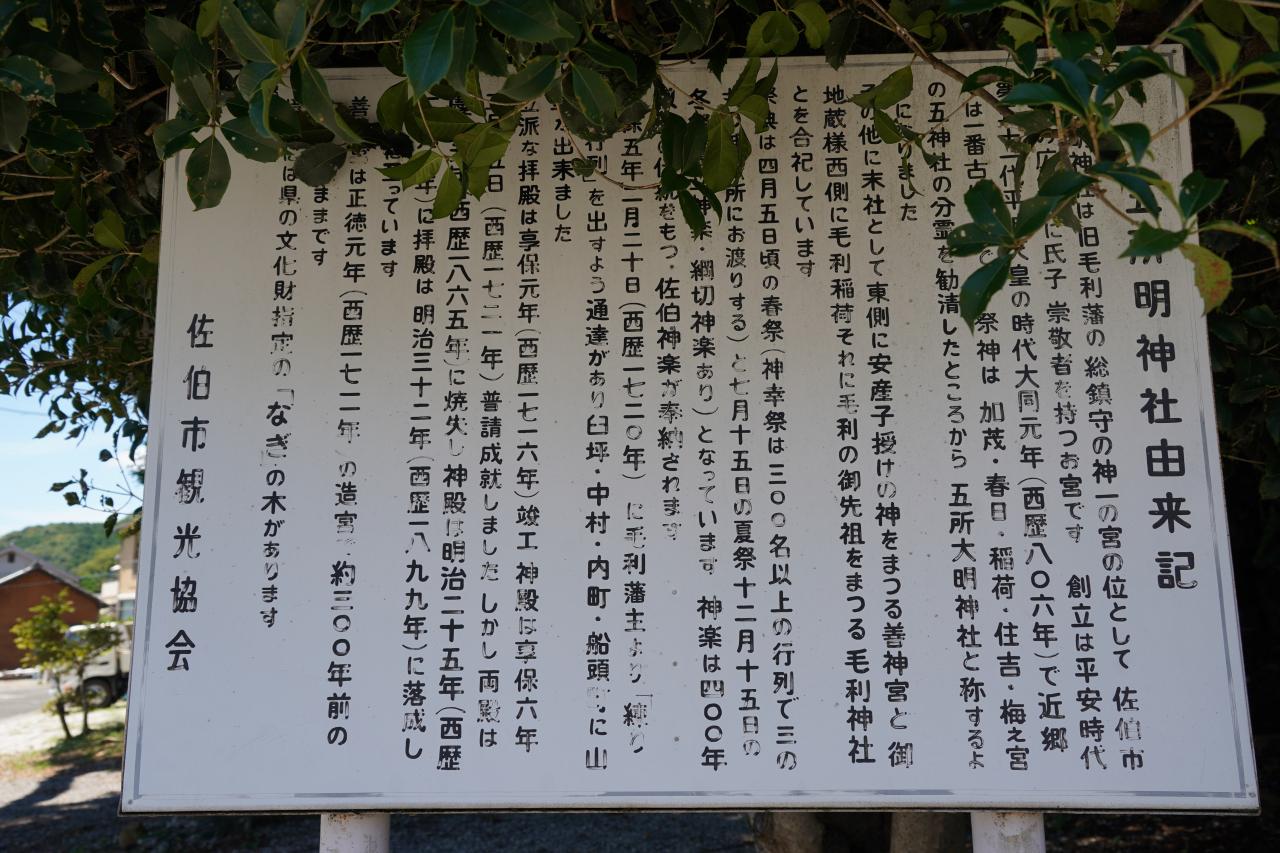 明神社由来記
神は旧毛利藩の 総鎮守の神一の宮の位として 佐伯市
に氏子 崇敬者を持つお宮です 創立は平安時代
皇の時代大同元年(西歴八〇六年)で近郷
は一番古 祭神は 加茂・春日・稲荷・住吉・梅之宮
の五神社の分霊を勧清したところから 五所大明神社と称するよ
ました
の他に末社として東側に安産子授けの神をまつる善神宮と 御
地蔵様西側に毛利稲荷それに毛利の御先祖をまつる毛利神社
とを合祀しています
は四月五日頃の春祭(神幸祭は三〇〇名以上の行列で三の
所にお渡りする)と七月十五日の夏祭十二月十五日の
冬 神楽・綱切神楽あり)となっています 神楽は四〇〇年
をもつ 佐伯神楽が奉納されます
五年一月二十日(西歴一七二〇年) に毛利藩主より「練り
行列」を出すよう通達があり臼坪・中村・内町・船頭 に山
が出来ました
派な拝殿は享保元年(西歴一七一六年)竣工 神殿は享保六年
日(西歴一七二一年)普請成就しました しかし両殿は
西歴一八六五年)に焼失し 神殿は明治二十五年(西歴
年)に拝殿は 明治三十二年(西歴一八九九年)に落成し
っています
善 は正徳元年(西歴一七一一年)の造宮 約三〇〇年前の
ままです
は県の文化財指定の「なぎ」の木があります
佐伯市観光協会